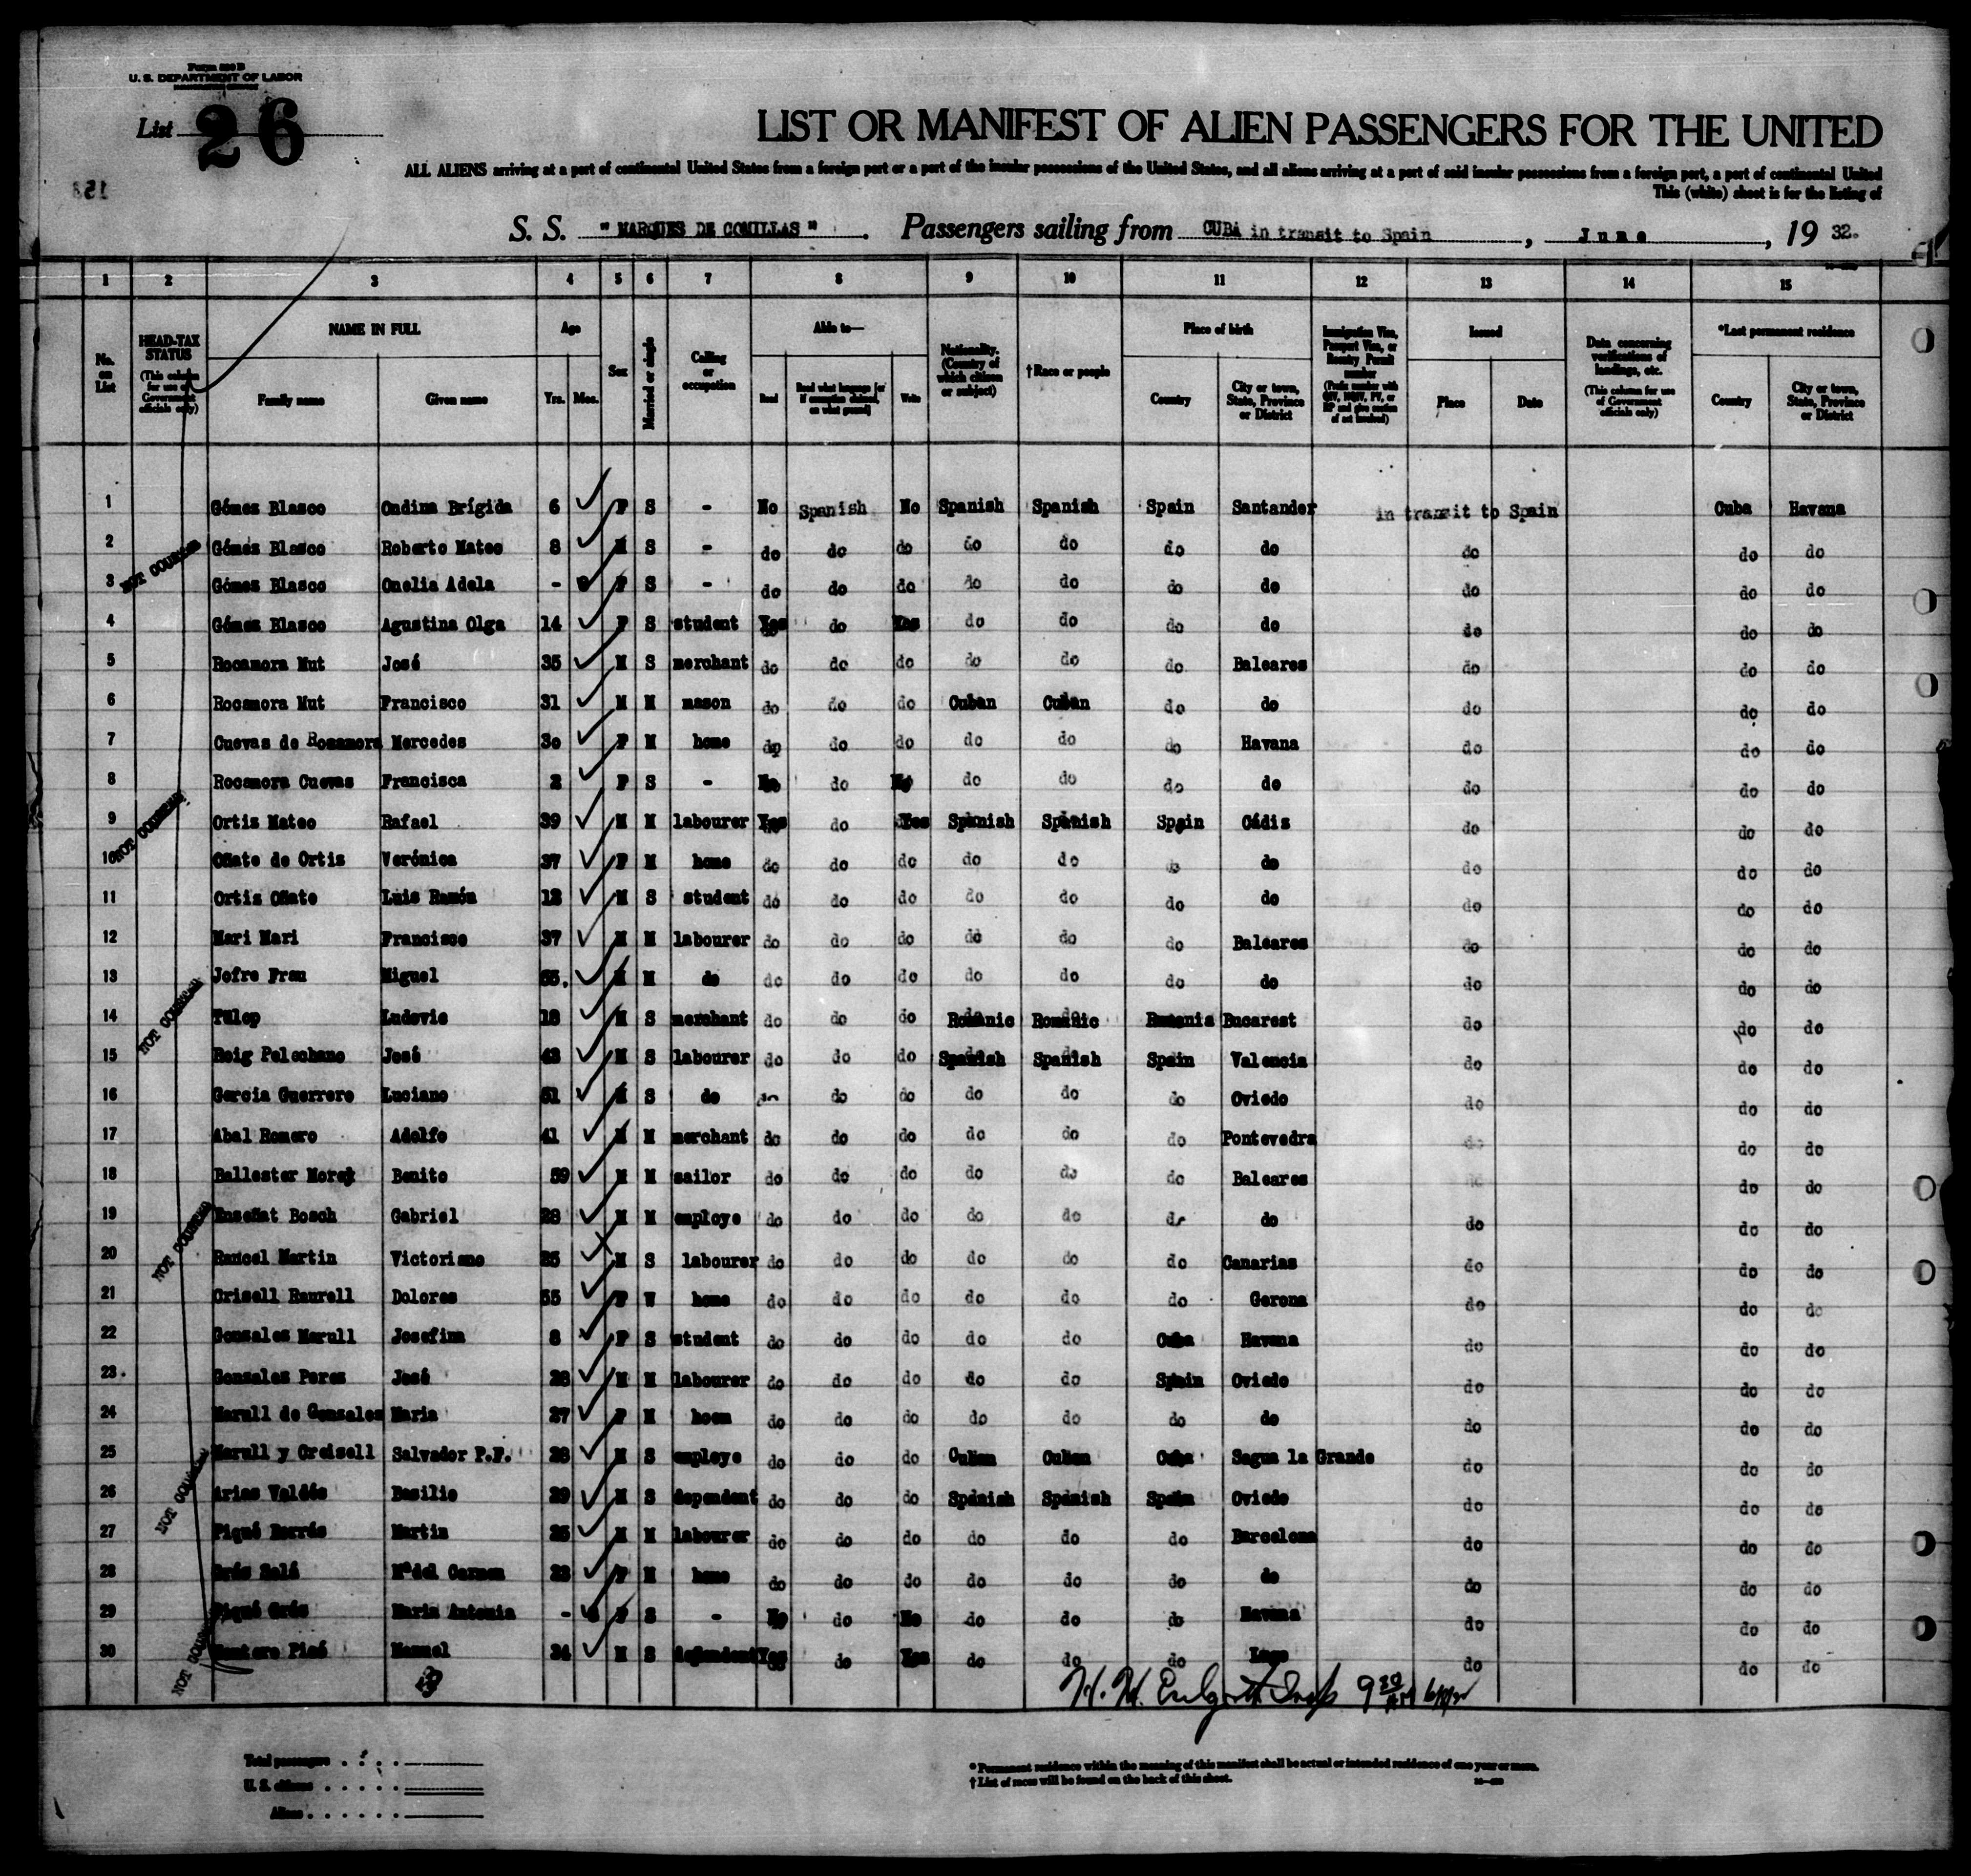 Form 500 B
U. S. DEPARTMENT OF LABOR
List 26
LIST OR MANIFEST OF ALIEN PASSENGERS FOR THE UNITED
ALL ALIENS arriving at a port of continental United States from a foreign port or a port of the insular possessions of the United States, and all aliens arriving at a port of said insular possessions from a foreign port, a port of continental United
This (white) sheet is for the listing of
S. S. "MARQUES DE COMILLAS". Passengers sailing from CUBA in transit to Spain, June, 19 32.
1 2 3 4 5 6 7 8 9 10 11 12 13 14 15
No. on List
HEAD-TAX STATUS (This column for use of Government officials only)
NAME IN FULL Family name Given name
Age Yrs. Mos.
Sex
Married or single
Calling or occupation
Able to— Read Read what language [or if exemption claimed, on what ground] Write
Nationality. (Country of which citizen or subject)
†Race or people
Place of birth Country City or town, State, Province or District
Immigration Visa, Passport Visa, or Reentry Permit number
Issued Place Date
Data concerning verifications of landings, etc. (This column for use of Government officials only)
*Last permanent residence Country City or town, State, Province or District
1 Gómez Blasco Ondina Brígida 6 F S - No Spanish No Spanish Spanish Spain Santander in transit to Spain Cuba Havana
2 Gómez Blasco Roberto Mateo 8 M S - do do do do do do do do do do
3 Gómez Blasco Onelia Adela - F S - do do do do do do do do do do
4 Gómez Blasco Agustina Olga 14 F S student Yes do Yes do do do do do do do
5 Rocamora Mut José 35 M S merchant do do do do do do Baleares do do do
6 Rocamora Mut Francisco 31 M M mason do do do Cuban Cuban do do do do do
7 Cuevas de Rocamora Mercedes 30 F M home do do do do do do Havana do do do
8 Rocamora Cuevas Francisca 2 F S - No do No do do do do do do do
9 Ortiz Mateo Rafael 39 M M labourer Yes do Yes Spanish Spanish Spain Cádiz do do do
10 Oñate de Ortiz Verónica 37 F M home do do do do do do do do do do
11 Ortiz Oñate Luis Ramón M S student do do do do do do do do do do
12 Mari Mari Francisco 37 M M labourer do do do do do do Baleares do do do
13 Jofre Frau Miguel M M do do do do do do do do do do do
14 Tülop Ludovic 18 M S merchant do do do Romanic Romanic Rumania Bucarest do do do
15 Roig Pelechano José 43 M S labourer do do do Spanish Spanish Spain Valencia do do do
16 Garcia Guerrero Luciano 51 M S do do do do do do do Oviedo do do do
17 Abal Romero Adolfo 41 M M merchant do do do do do do Pontevedra do do do
18 Ballester Morey Benito 59 M M sailor do do do do do do Baleares do do
19 Enseñat Bosch Gabriel 28 M M employe do do do do do do do do do do
20 Rancel Martin Victoriano 25 M S labourer do do do do do do Canarias do do do
21 Crisell Raurell Dolores 55 F W home do do do do do do Gerona do do do
22 Gonzalez Marull Josefina 8 F S student do do do do do Cuba Havana do do do
23. Gonzalez Perez José 28 M M labourer do do do do do Spain Oviedo do do do
24 Marull de Gonzalez Maria 27 F M hoem do do do do do do do do do do
25 Marull y Creisell Salvador P.F. 28 M S employe do do do Cuban Cuban Cuba Sagua la Grande do do do
26 Arias Valdés Basilio 29 M S dependent do do do Spanish Spanish Spain Oviedo do do do
27 Piqué Borrás Martin 25 M M labourer do do do do do do Barcelona do do do
28 Solá Mª del Carmen F M home do do do do do do do do do do
29 Piqué Maria Antonia - F S - No do No do do do Havana do do do
30 Manuel 24 M S dependent Yes do Yes do do do Lugo do do do
NOT COUNTED
NOT COUNTED
NOT COUNTED
NOT COUNTED
NOT COUNTED
NOT COUNTED
H. H. 9 30 AM
Total passengers
U. S. citizens
Aliens
* Permanent residence within the meaning of this manifest shall be actual or intended residence of one year or more.
† List of races will be found on the back of this sheet.